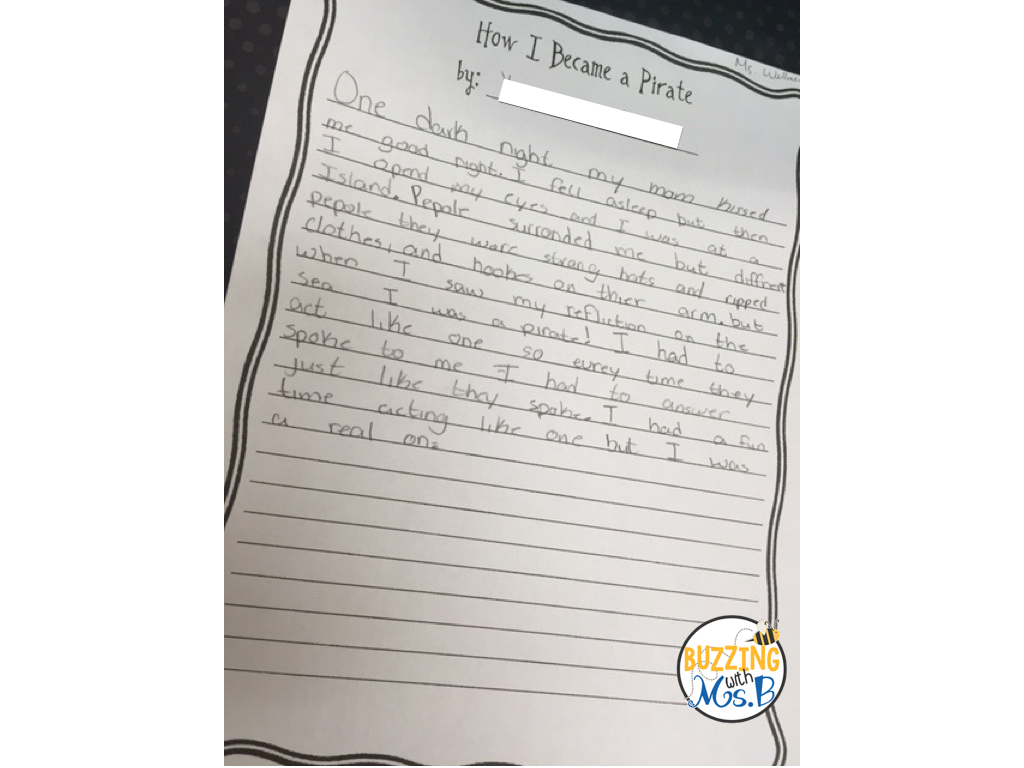 Ms. 
How I Became a Pirate
by:
One dark night my mom kissed
me good night. I fell asleep but then
I opend my eyes and I was at a
Island. Pepole surronded me but diffrent
pepole they ware strang hats and ripped
clothes, and hooks on thier arm. but
when I saw my refliction on the
sea I was a pirate! I had to
act like one so eurey time they
spoke to me I had to answer
just like they spoke. I had a fun
time acting like one but I was
a real one
BUZZING
with
Ms. B